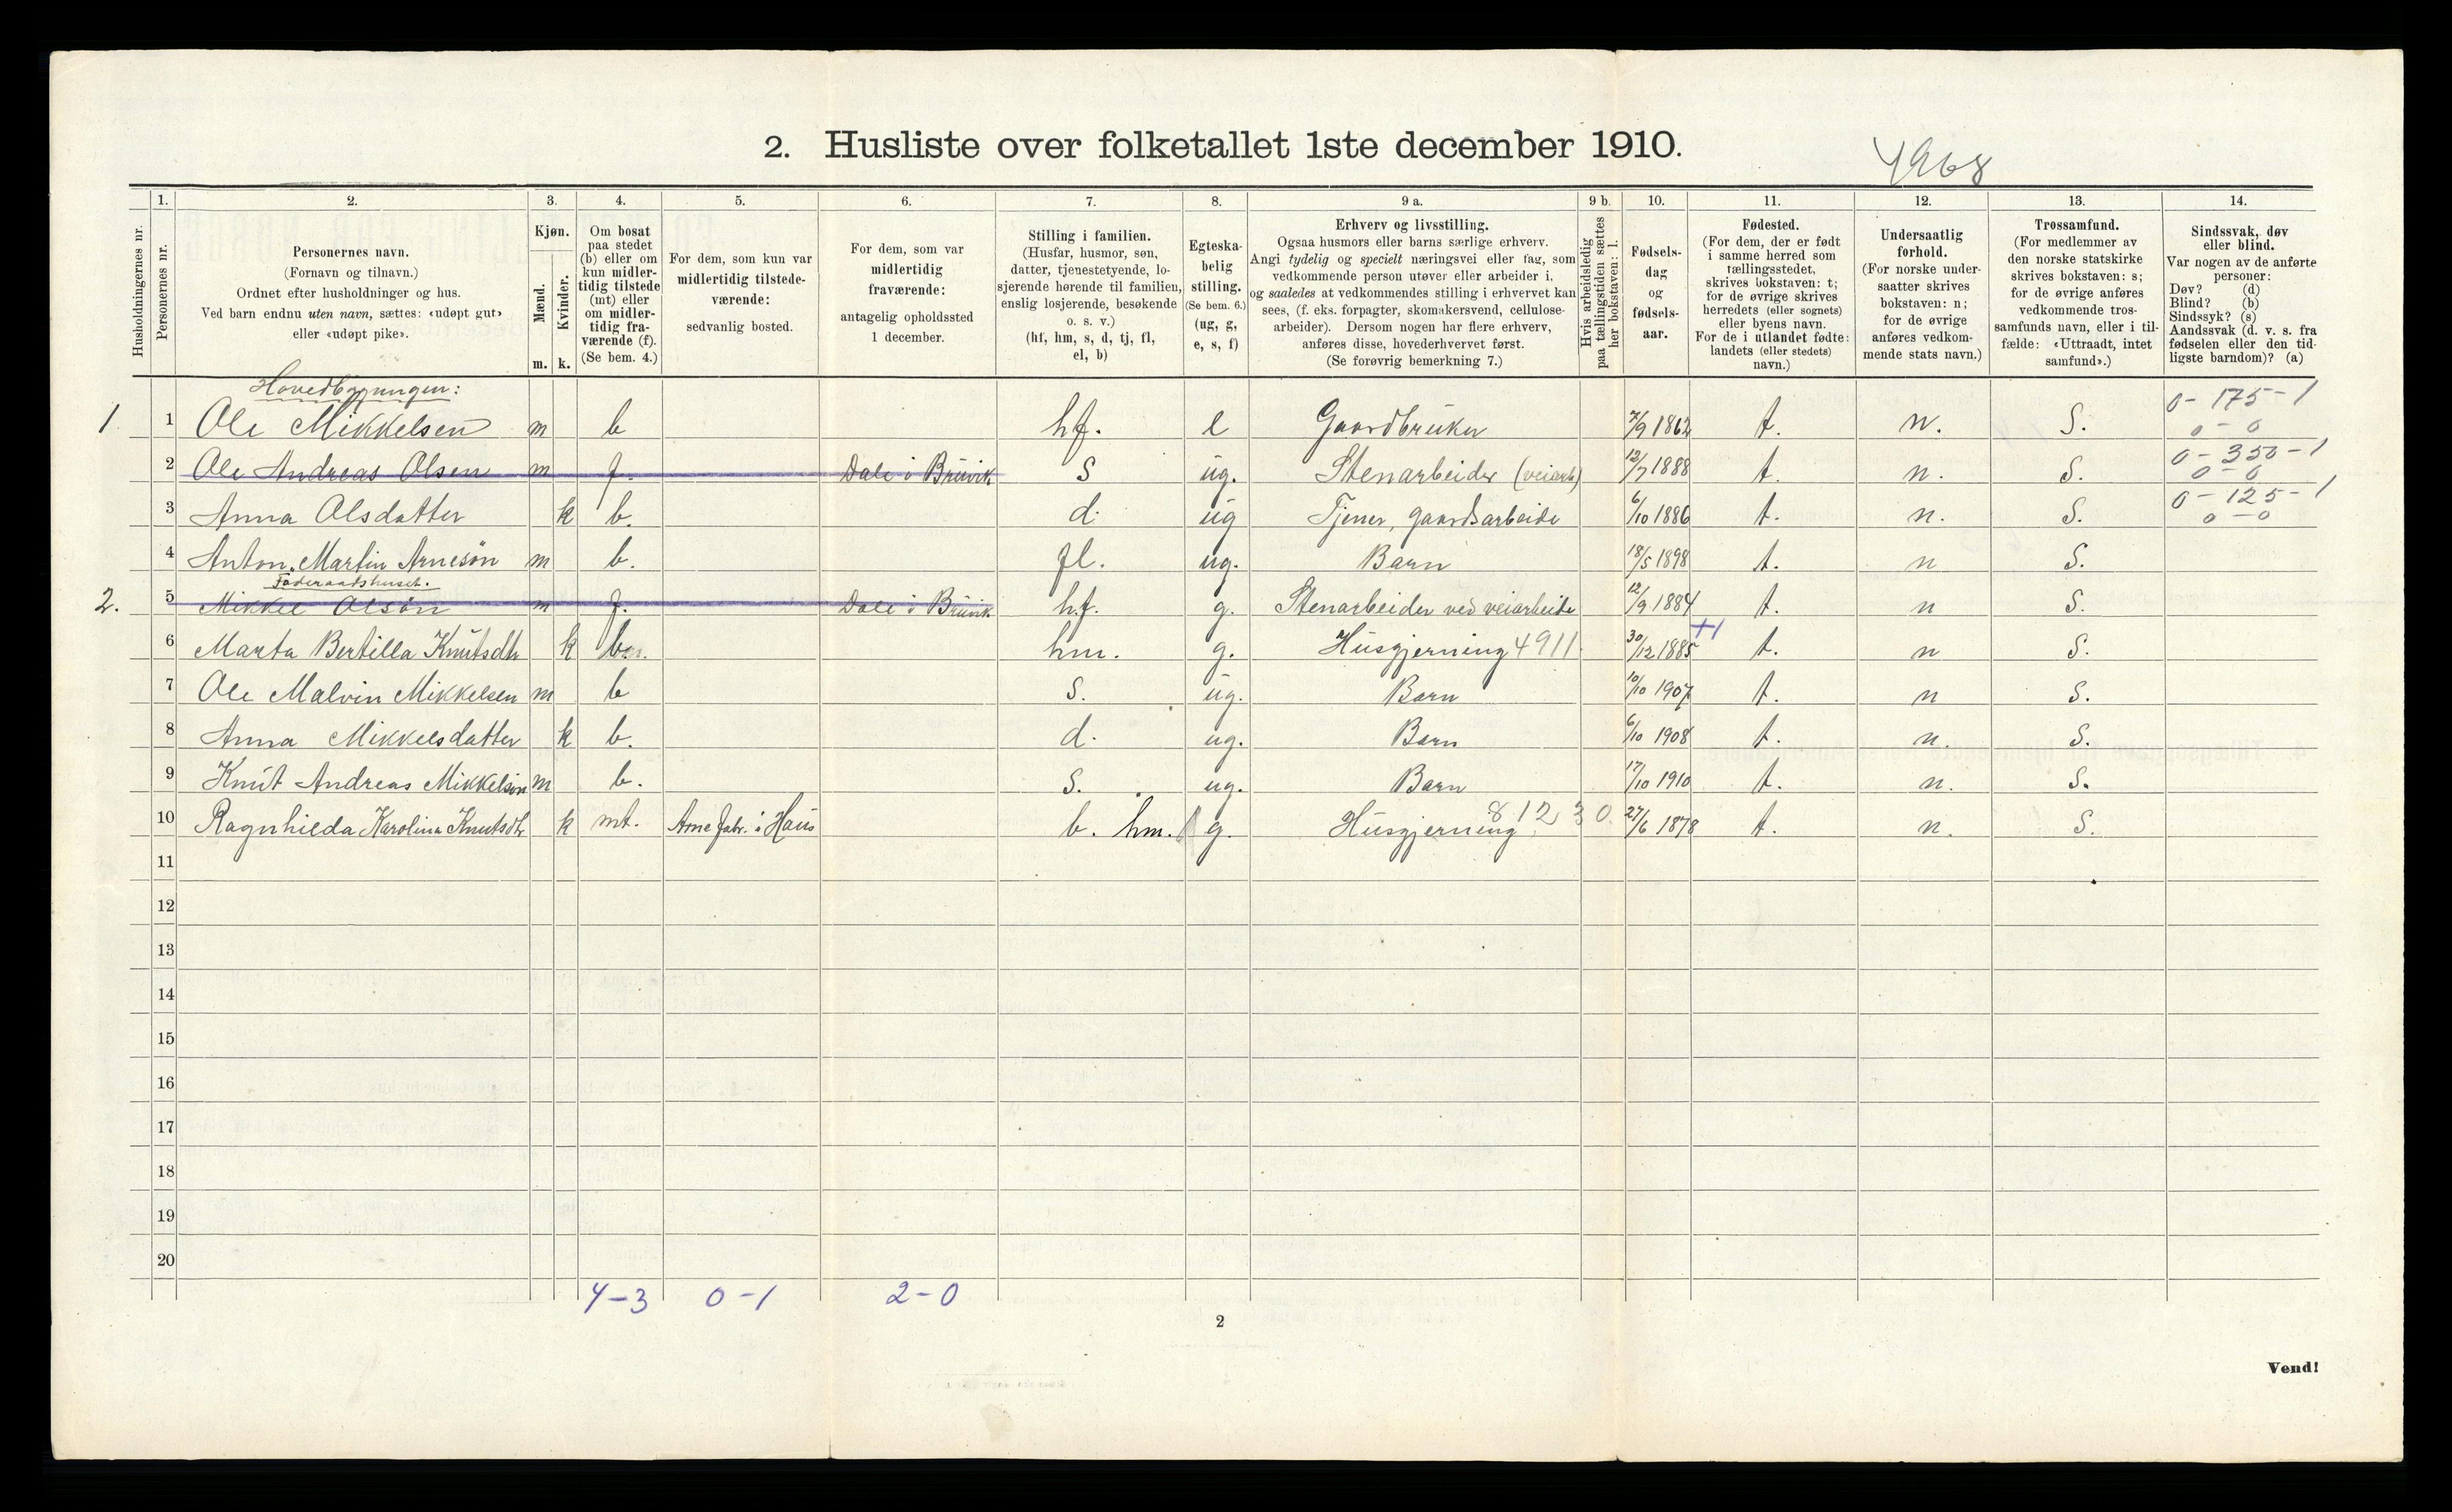 2. Husliste over folketallet 1ste december 1910.
4968
Husholdningernes nr.
1.
Personernes nr.
2.
Personernes navn.
(Fornavn og tilnavn.)
Ordnet efter husholdninger og hus.
Ved barn endnu uten navn, sættes: «udøpt gut»
eller «udøpt pike».
3.
Kjøn.
Mænd.
Kvinder.
m. k.
4.
Om bosat
paa stedet
(b) eller om
kun midler-
tidig tilstede
(mt) eller
om midler-
tidig fra-
værende (f).
(Se bem. 4.)
5.
For dem, som kun var
midlertidig tilstede-
værende:
sedvanlig bosted.
6.
For dem, som var
midlertidig
fraværende:
antagelig opholdssted
1 december.
7.
Stilling i familien.
(Husfar, husmor, søn,
datter, tjenestetyende, lo-
sjerende hørende til familien,
enslig losjerende, besøkende
o. s. v.)
(hf, hm, s, d, tj, fl,
el, b)
8.
Egteska-
belig
stilling.
(Se bem. 6.)
(ug, g,
e, s, f)
9 a.
Erhverv og livsstilling.
Ogsaa husmors eller barns særlige erhverv.
Angi tydelig og specielt næringsvei eller fag, som
vedkommende person utøver eller arbeider i,
og saaledes at vedkommendes stilling i erhvervet kan
sees, (f. eks. forpagter, skomakersvend, cellulose-
arbeider). Dersom nogen har flere erhverv,
anføres disse, hovederhvervet først.
(Se forøvrig bemerkning 7.)
9 b.
Hvis arbeidsledig
paa tællingstiden sættes
her bokstaven: l.
10.
Fødsels-
dag
og
fødsels-
aar.
11.
Fødested.
(For dem, der er født
i samme herred som
tællingsstedet,
skrives bokstaven: t;
for de øvrige skrives
herredets (eller sognets)
eller byens navn.
For de i utlandet fødte:
landets (eller stedets)
navn.)
12.
Undersaatlig
forhold.
(For norske under-
saatter skrives
bokstaven: n;
for de øvrige
anføres vedkom-
mende stats navn.)
13.
Trossamfund.
(For medlemmer av
den norske statskirke
skrives bokstaven: s;
for de øvrige anføres
vedkommende tros-
samfunds navn, eller i til-
fælde: «Uttraadt, intet
samfund».)
14.
Sindssvak, døv
eller blind.
Var nogen av de anførte
personer:
Døv? (d)
Blind? (b)
Sindssyk? (s)
Aandssvak (d. v. s. fra
fødselen eller den tid-
ligste barndom)? (a)
Hovedbygningen:
1 1 Ole Mikkelsen m b hf. e Gaardbruker 7/9 1862 t. n. S. 0-175-1 0-0
2 Ole Andreas Olsen m f. Dale i Bruvik S ug. Stenarbeider (veiarb) 12/7 1888 t. n. S. 0-350-1 0-0
3 Anna Olsdatter k b. d. ug Tjener, gaardsarbeide 6/10 1886 t. n. S. 0-125-1 0-0
4 Anton Martin Arneson m b. fl. ug. Barn 18/5 1898 t. n S.
Føderaadshuset.
2. 5 Mikkel Olson m f. Dale i Bruvik hf. g. Stenarbeider ved veiarbeide 12/9 1884 t. n S.
6 Marta Bertilla Knutsdtr k b. hm. g. Husgjerning 4911 30/12 1885 +1 t. n S.
7 Ole Malvin Mikkelsen m b S. ug. Barn 10/10 1907 t. n S.
8 Anna Mikkelsdatter k b. d. ug. Barn 6/10 1908 t. n. S.
9 Knut Andreas Mikkelson m b. S. ug. Barn 17/10 1910 t. n. S.
10 Ragnhilda Karolina Knutsdtr k mt. Arne fabr. i Haus b. hm. g. Husgjerning 81230. 27/6 1878 t. n. S.
11
12
13
14
15
16
17
18
19
20
4-3 0-1 2-0
2
Vend!